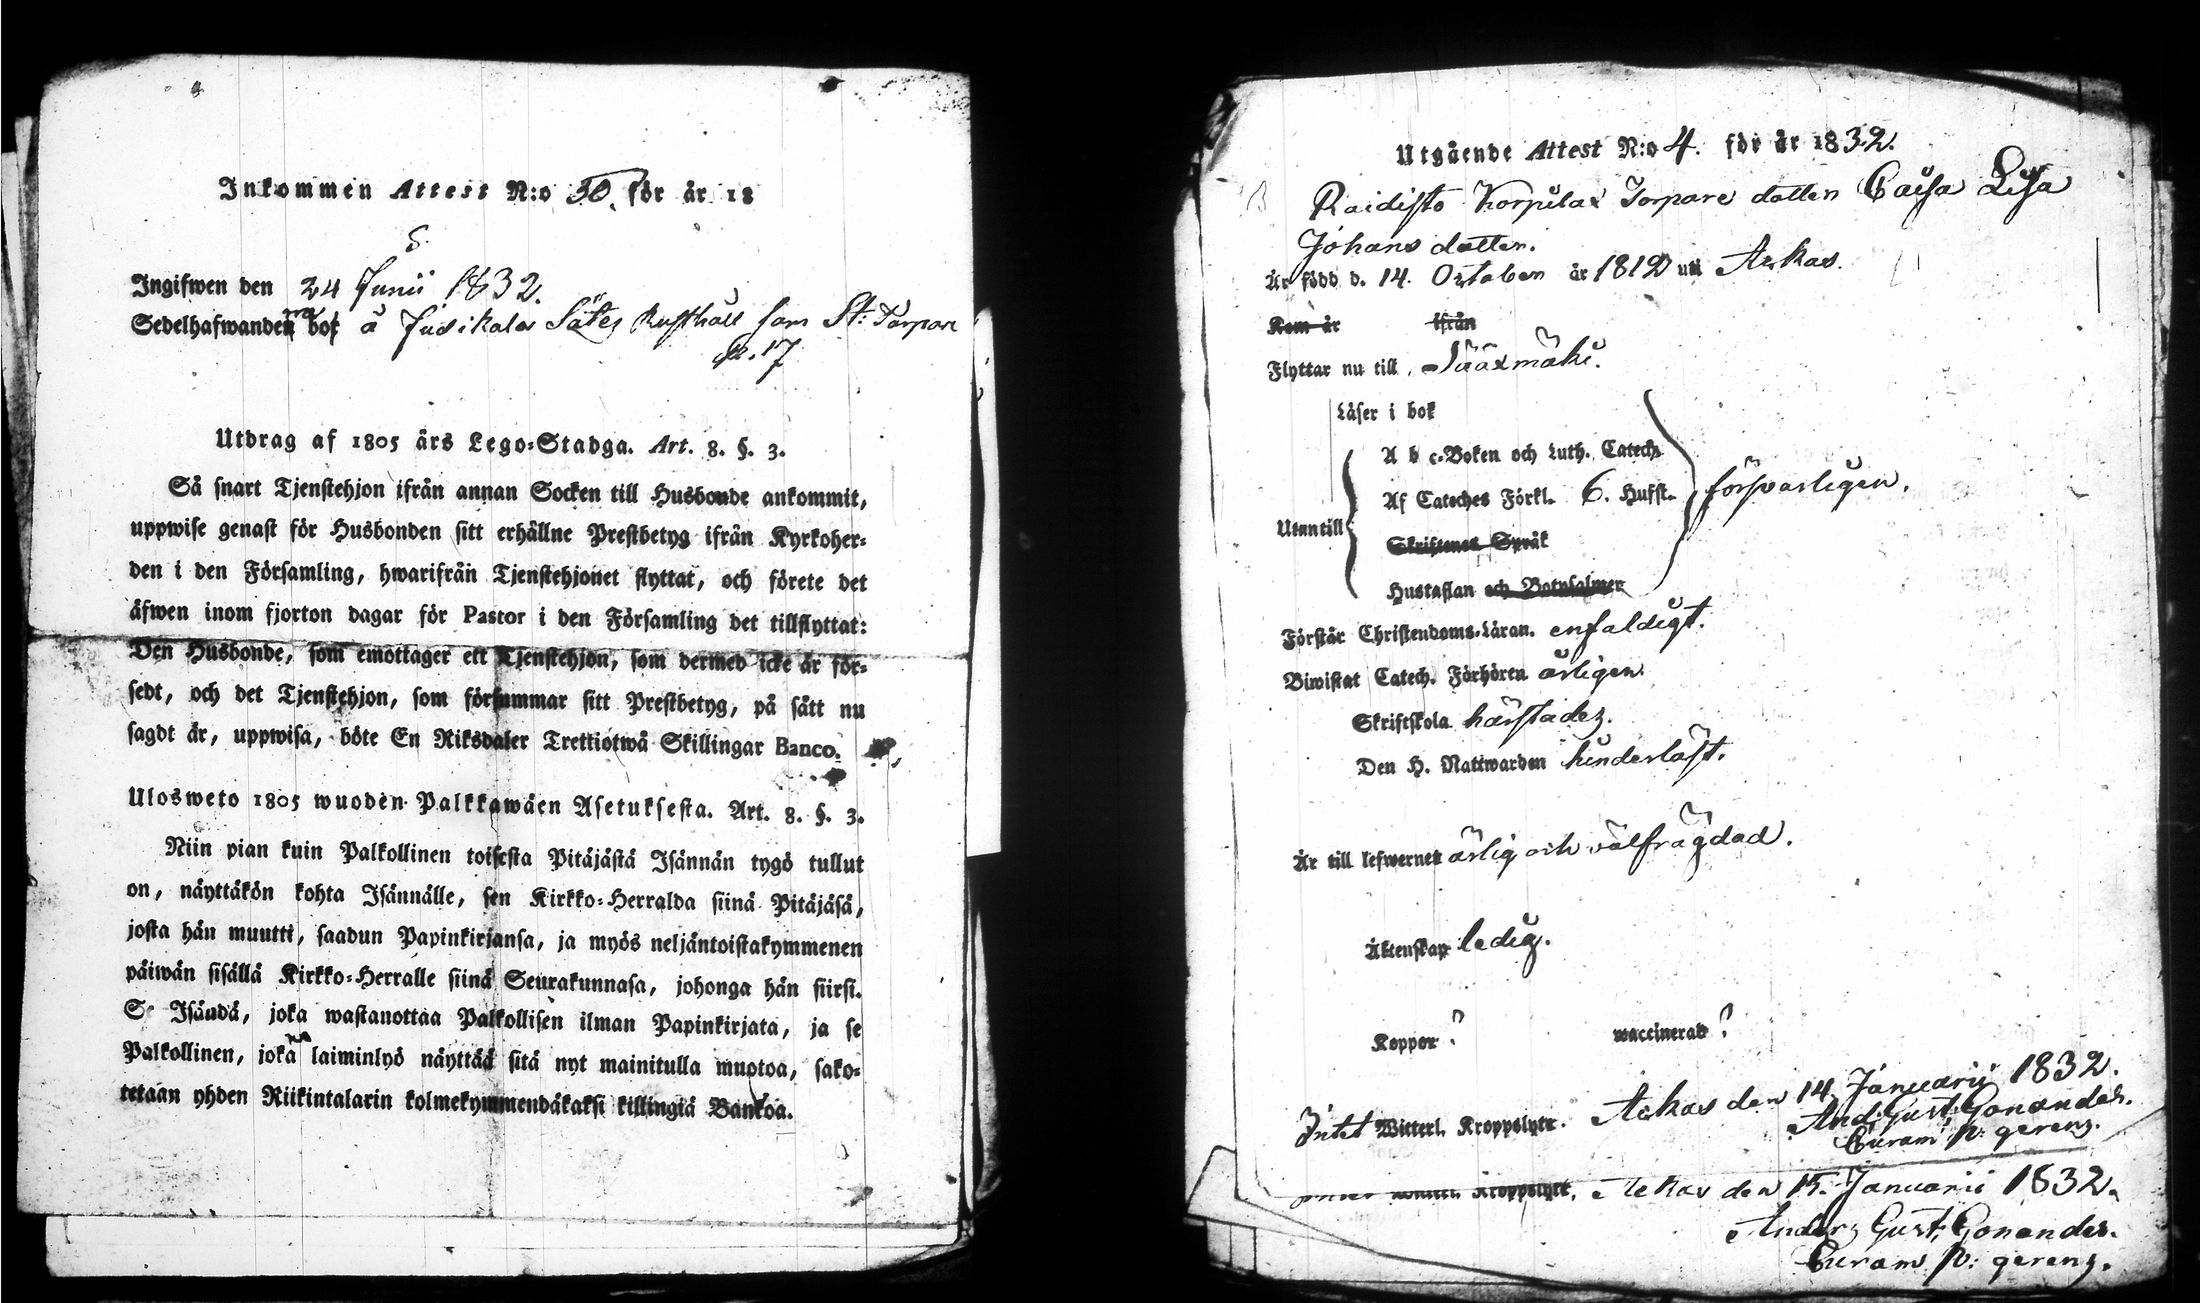 Inkommen Attest N:o 30. för år 18
S.
Ingifwen den 24 Junii 1832.
Sedelhafwanden bor å Judikala Sätes Rusthåll som St: Torpare
p. 17
Utdrag af 1805 års Lego-Stadga. Art. 8. §. 3.
Så snart Tjenstehjon ifrån annan Socken till Husbonde ankommit,
uppwise genast för Husbonden sitt erhållne Prestbetyg ifrån Kyrkoher-
den i den Församling, hwarifrån Tjenstehjonet flyttat, och förete det
äfwen inom fjorton dagar för Pastor i den Församling det tillflyttat:
Den Husbonde, som emottager ett Tjenstehjon, som dermed icke är för-
sedt, och det Tjenstehjon, som försummar sitt Prestbetyg, på sätt nu
sagdt är, uppwisa, böte En Riksdaler Trettiotwå Skillingar Banco.
Ulosweto 1805 wuoden Palkkawäen Asetuksesta. Art. 8. §. 3.
Niin pian kuin Palkollinen toisesta Pitäjästä Isännän tygö tullut
on, näyttäkön kohta Isännälle, sen Kirkko-Herralda siinä Pitäjäsä,
josta hän muutti, saadun Papinkirjansa, ja myös neljäntoistakymmenen
päiwän sisällä Kirkko-Herralle siinä Seurakunnasa, johonga hän siirsi.
Se Isändä, joka wastanottaa Palkollisen ilman Papinkirjata, ja se
Palkollinen, joka laiminlyö näyttää sitä nyt mainitulla muotoa, sako-
tetaan yhden Riikintalarin kolmekymmendäkaksi killingiä Bankoa.
Utgående Attest N:o 4. för år 1832.
Raidisto Korpilax Torpare dotten Caisa Lisa
Johans dotter.
Är född d. 14. October år 1812 uti Ackas.
Kom år ifrån
Flyttar nu till Sääxmäki.
Läser i bok
A b c-Boken och Luth. Catech.
Af Cateches Förkl. 6. Hufst. försvarligen.
Utantill
Skriftenes Språk
Hustaflan och Botpsalmer
Förstår Christendoms-Läran. enfaldigt.
Biwistat Catech. Förhören årligen.
Skriftskola
Den H. Nattwarden hinderlöst.
Är till lefwernet ärlig och välfrägdad.
Äktenskap ledig.
Koppor? waccinerad?
Intet Witterl. Kroppslyte. Ackas den 14. Januarii 1832.
And: Gust: Gonander.
Curam p: gerens.
Kroppslyte. Ackas den 15. Januarii 1832.
Anders Gust. Gonander.
Curam p: gerens.